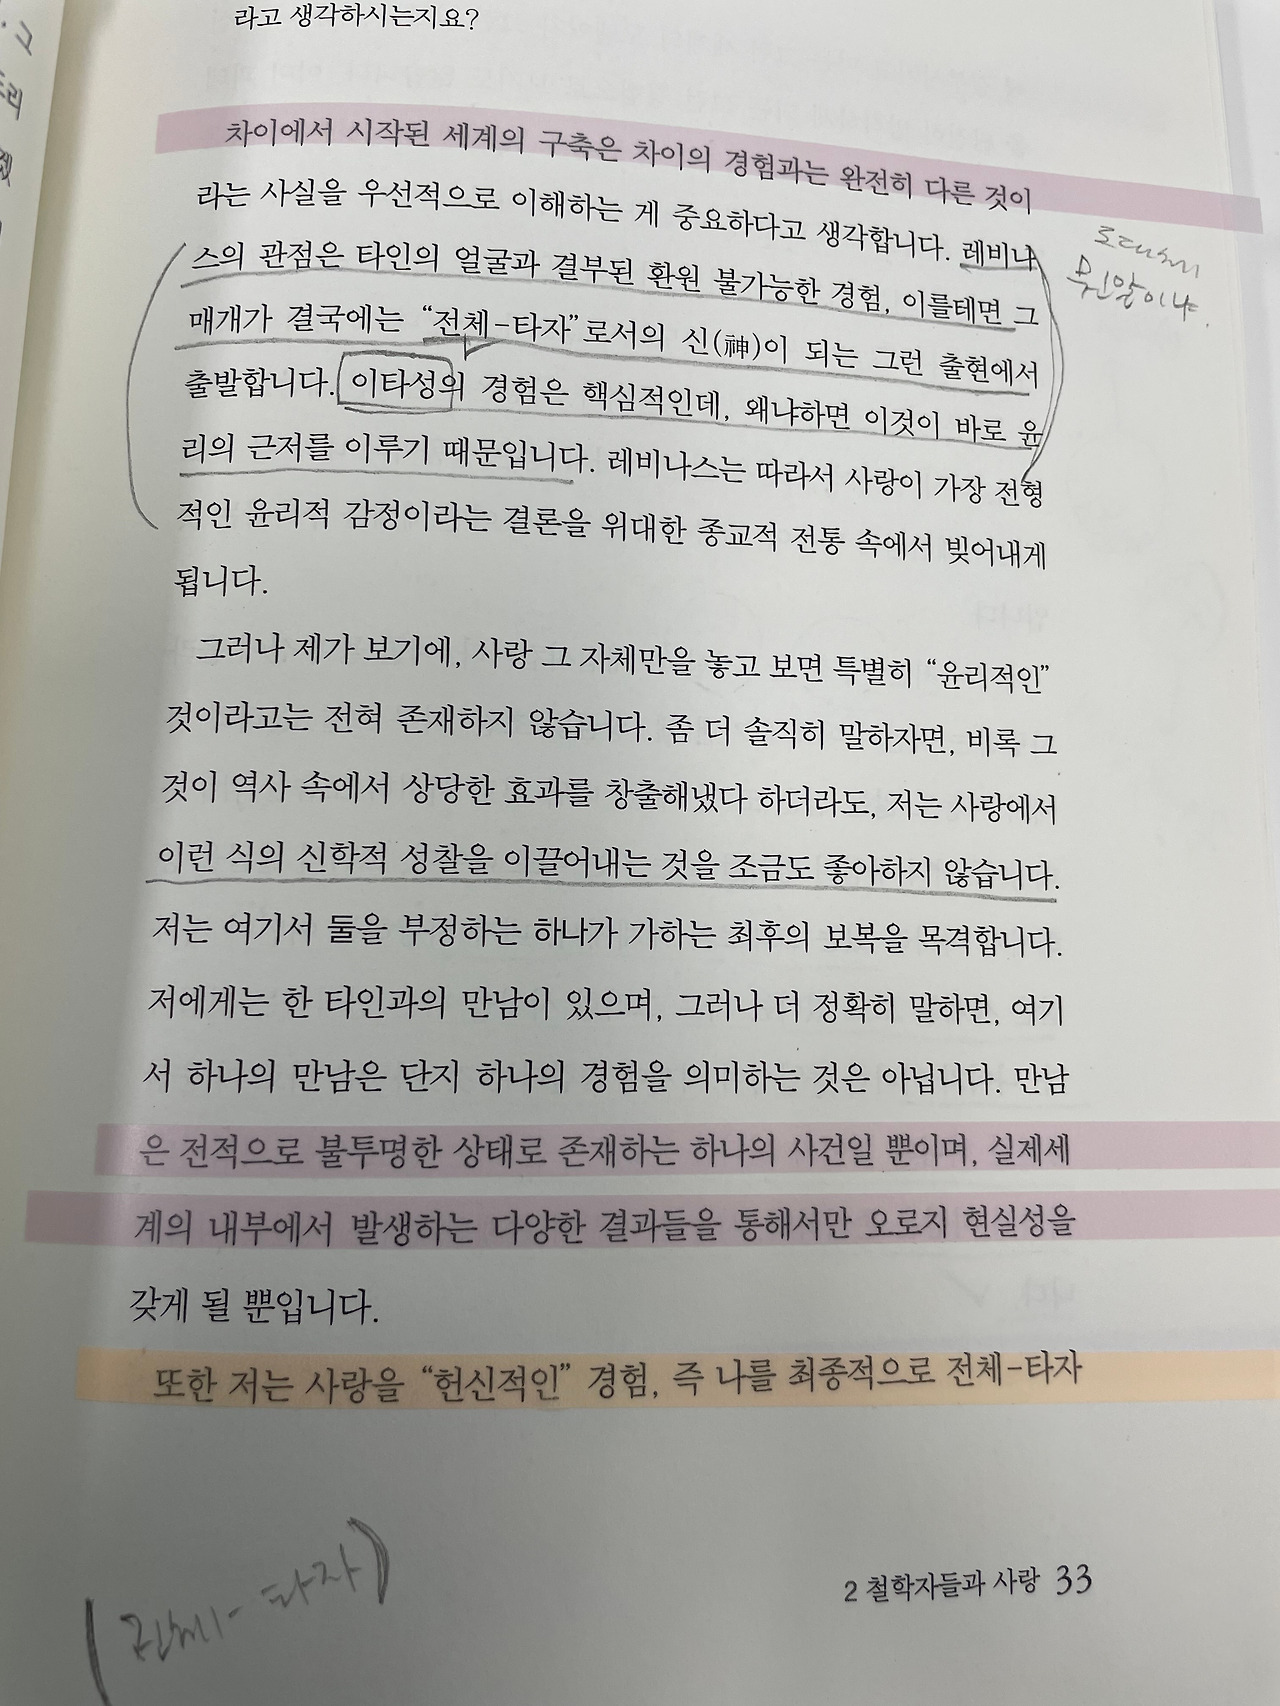 그
드리
겠
라고 생각하시는지요?
차이에서 시작된 세계의 구축은 차이의 경험과는 완전히 다른 것이
라는 사실을 우선적으로 이해하는 게 중요하다고 생각합니다. 레비나
스의 관점은 타인의 얼굴과 결부된 환원 불가능한 경험, 이를테면 그
매개가 결국에는 “전체-타자”로서의 신(神)이 되는 그런 출현에서
출발합니다. 이타성의 경험은 핵심적인데, 왜냐하면 이것이 바로 윤
리의 근저를 이루기 때문입니다. 레비나스는 따라서 사랑이 가장 전형
적인 윤리적 감정이라는 결론을 위대한 종교적 전통 속에서 빚어내게
됩니다.
도대체
무신말이냐.
그러나 제가 보기에, 사랑 그 자체만을 놓고 보면 특별히 “윤리적인”
것이라고는 전혀 존재하지 않습니다. 좀 더 솔직히 말하자면, 비록 그
것이 역사 속에서 상당한 효과를 창출해냈다 하더라도, 저는 사랑에서
이런 식의 신학적 성찰을 이끌어내는 것을 조금도 좋아하지 않습니다.
저는 여기서 둘을 부정하는 하나가 가하는 최후의 보복을 목격합니다.
저에게는 한 타인과의 만남이 있으며, 그러나 더 정확히 말하면, 여기
서 하나의 만남은 단지 하나의 경험을 의미하는 것은 아닙니다. 만남
은 전적으로 불투명한 상태로 존재하는 하나의 사건일 뿐이며, 실제세
계의 내부에서 발생하는 다양한 결과들을 통해서만 오로지 현실성을
갖게 될 뿐입니다.
또한 저는 사랑을 “헌신적인” 경험, 즉 나를 최종적으로 전체-타자
(전체-타자)
2 철학자들과 사랑 33